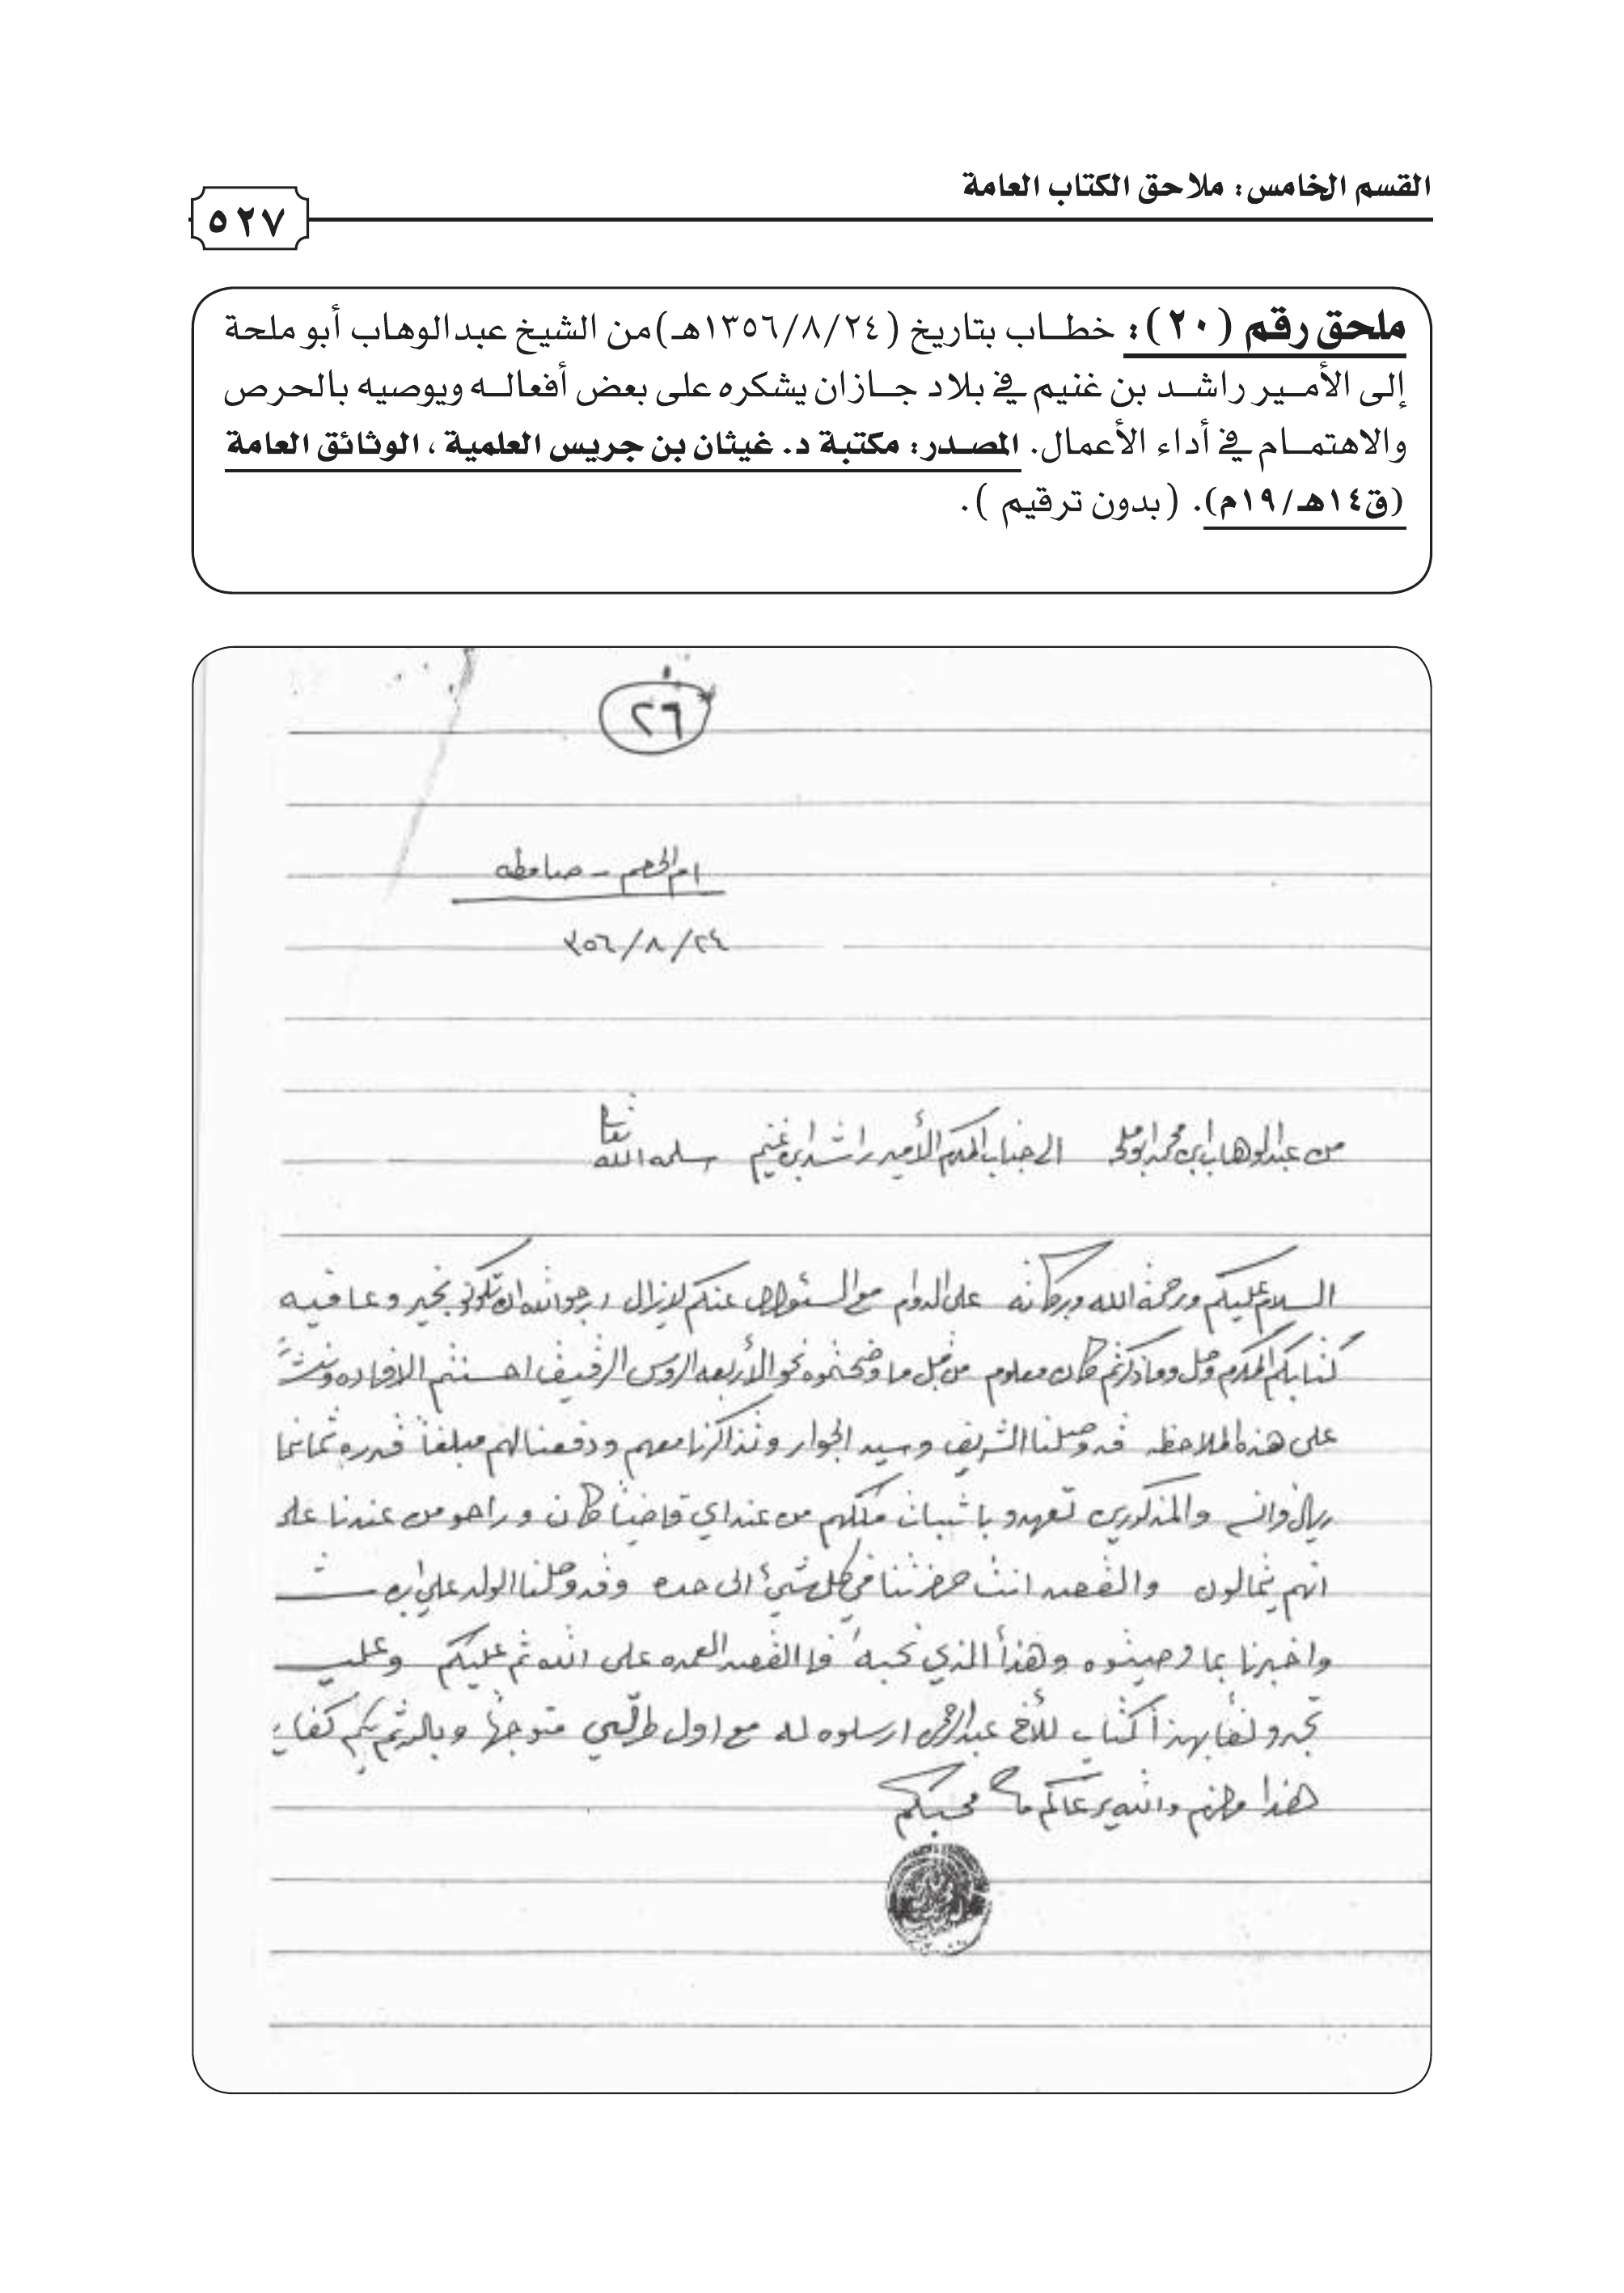 القسم الخامس: ملاحق الكتاب العامة
٥٢٧
ملحق رقم (٢٠): خطاب بتاريخ (١٣٥٦/٨/٢٤هـ) من الشيخ عبدالوهاب أبو ملحة
إلى الأمير راشد بن غنيم في بلاد جازان يشكره على بعض أفعاله ويوصيه بالحرص
والاهتمام في أداء الأعمال. المصدر: مكتبة د. غيثان بن جريس العلمية، الوثائق العامة
(ق١٤هـ/١٩م). (بدون ترقيم).
٢٦
ام الخصم - صامطه
٣٥٦/٨/٢٤
من عبدالوهاب ابن محمد ابوملحه الى جناب المكرم الأمير راشد ابن غنيم سلمه الله تعالى
السلام عليكم ورحمة الله وبركاته على الدوام مع السئوال عنكم لا يزال ارجو الله ان تكونو بخير وعافيه
كتابكم المكرم وصل وما ذكرتم كان معلوم من قبل ما وضحتموه نحو الأربعه الروس الرقيق احسنتم الافاده
على هذه الملاحظه قد وصلنا الشريف وسيد الجوار وتذاكرنا معهم ودفعنا لهم مبلغاً قدره
ريال والمذكورين تعهدو باثبات ملكهم من عند اي قاضياً كان وراحو من عندنا على
انهم والقصد انت في كل شيئ الى حده وقد وصلنا الولد علي ابن
واخبرنا بما وصيتوه وهذا الذي نحبه فا القصد العمده على الله ثم عليكم
تجدو لفا بهذا كتاب للأخ عبدالرحمن ارسلوه له مع اول طرقي متوجهاً
هذا مالزم والله يرعاكم محبكم